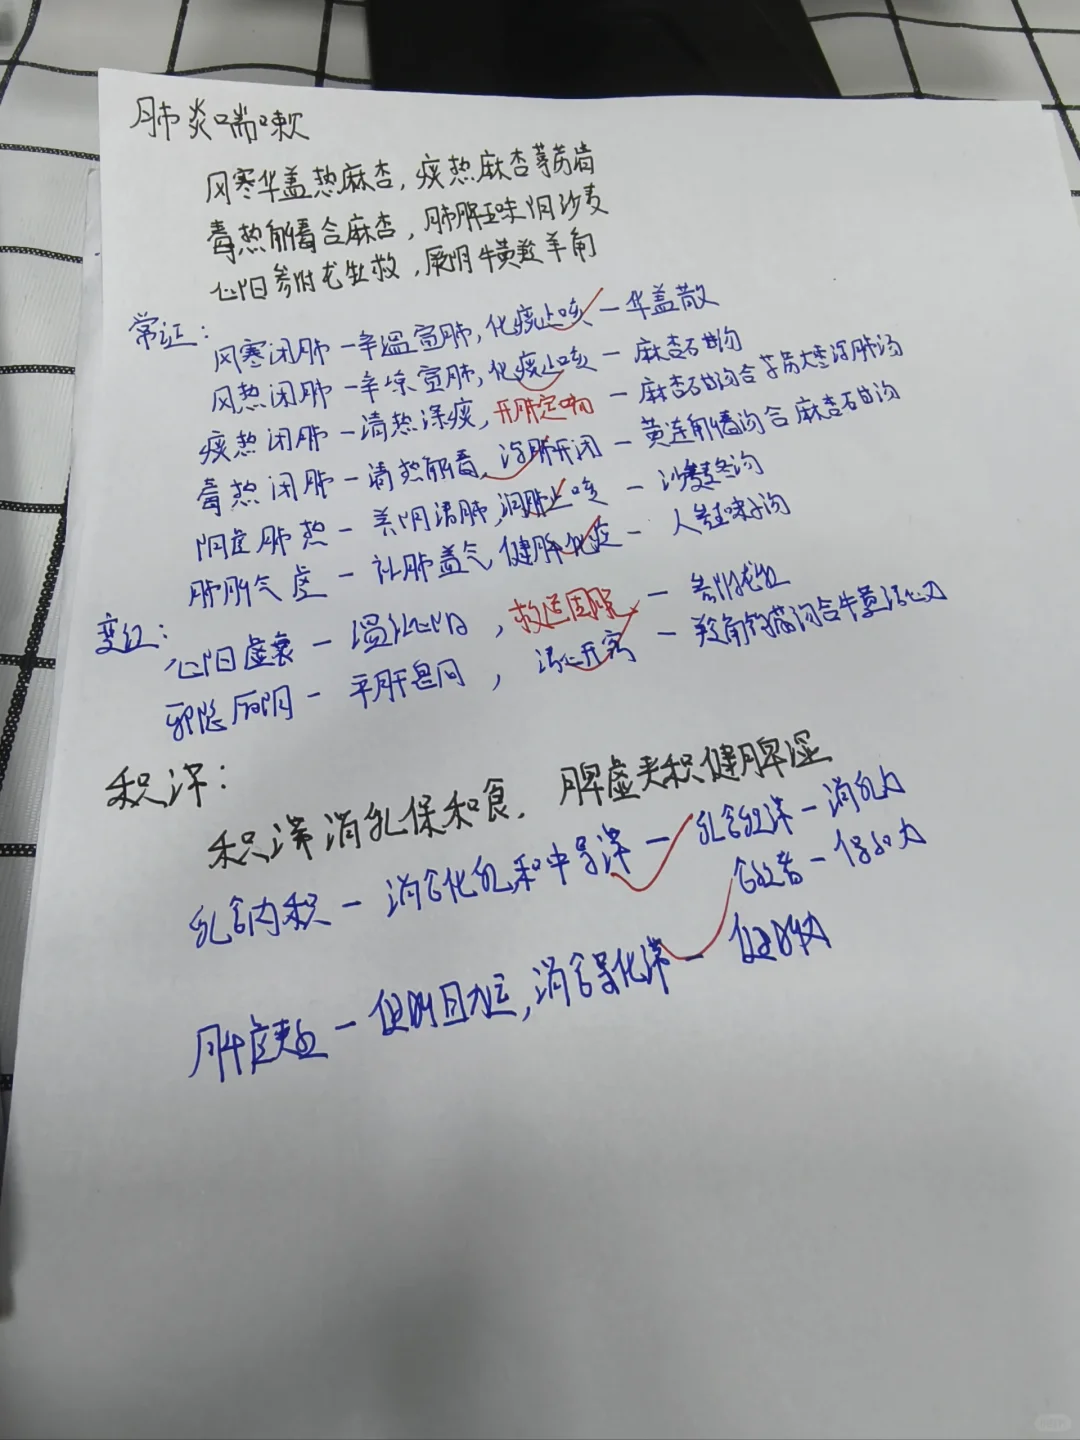 肺炎喘嗽
风寒华盖热麻杏，痰热麻杏葶苈皆
毒热解毒合麻杏，肺脾五味阴沙麦
心阳参附龙牡救，厥阴牛黄羚羊角
常证：
风寒闭肺－辛温宣肺，化痰止咳－华盖散
风热闭肺－辛凉宣肺，化痰止咳－麻杏石甘汤
痰热闭肺－清热涤痰，开肺定喘－麻杏石甘汤合葶苈大枣泻肺汤
毒热闭肺－清热解毒，泻肺开闭－黄连解毒汤合麻杏石甘汤
阴虚肺热－养阴清肺，润肺止咳－沙参麦冬汤
肺脾气虚－补肺益气 健脾化痰－人参五味子汤
变证：
心阳虚衰－温补心阳，救逆固脱－参附龙牡
邪陷厥阴－平肝息风，清心开窍－羚角钩藤汤合牛黄清心丸
积滞：
积滞消乳保和食，脾虚夹积健脾湿
乳食内积－消食化乳和中导滞－乳食积滞－消乳丸
食者－保和丸
脾虚夹积－健脾助运，消食化滞－健脾丸